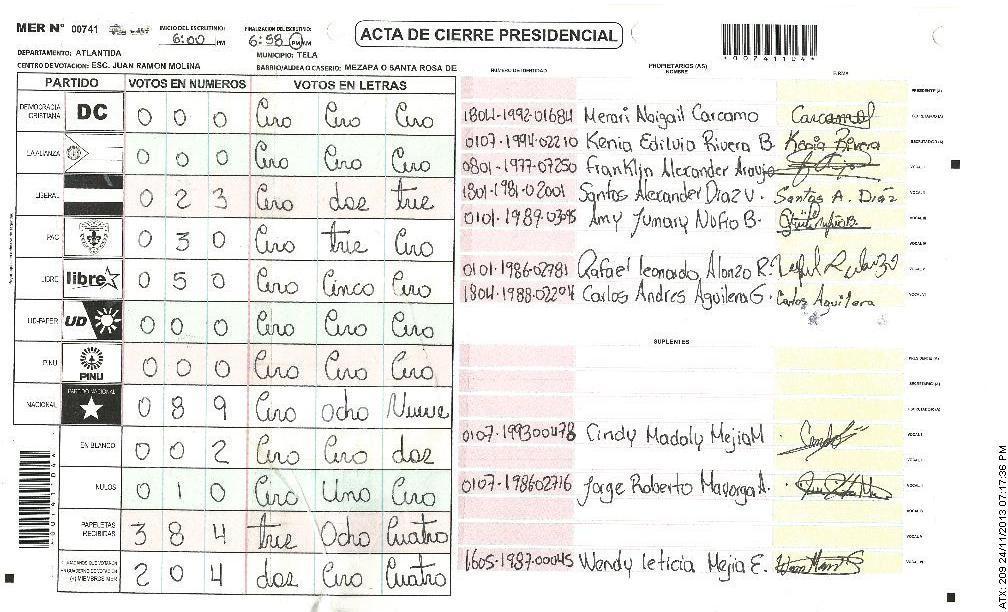 MER N° 00741 INICIO DEL ESCRUTINIO: 6:00 PM FINALIZACION DEL ESCRUTINIO: 6:58 PM AM
ACTA DE CIERRE PRESIDENCIAL
*00741104*
DEPARTAMENTO: ATLANTIDA MUNICIPIO: TELA
CENTRO DE VOTACION: ESC. JUAN RAMON MOLINA BARRIO/ALDEA O CASERIO: MEZAPA O SANTA ROSA DE
PARTIDO VOTOS EN NUMEROS VOTOS EN LETRAS
DEMOCRACIA CRISTIANA DC 0 0 0 Cero Cero Cero
LA ALIANZA 0 0 0 Cero Cero Cero
LIBERAL 0 2 3 Cero dos tres
PAC 0 3 0 Cero tres Cero
LIBRE libre 0 5 0 Cero Cinco Cero
UD-FAPER UD 0 0 0 Cero Cero Cero
PINU PINU 0 0 0 Cero Cero Cero
NACIONAL PARTIDO NACIONAL 0 8 9 Cero Ocho Nueve
EN BLANCO 0 0 2 Cero Cero dos
NULOS 0 1 0 Cero Uno Cero
PAPELETAS RECIBIDAS 3 8 4 tres Ocho Cuatro
CIUDADANOS QUE VOTARON EN CUADERNO DE VOTACION (+) MIEMBROS MER 2 0 4 dos Cero Cuatro
NUMERO DE IDENTIDAD PROPIETARIOS (AS) NOMBRE FIRMA
PRESIDENTE (A)
1804-1992-01684 Merari Abigail Carcamo Carcamo SECRETARIO (A)
0107-1994-02210 Kenia Edilvia Rivera B. Kenia Rivera ESCRUTADOR (A)
0801-1977-07250 Franklin Alexander Araujo VOCAL I
1801-1981-02001 Santos Alexander Diaz V. Santos A. Díaz VOCAL II
0101-1989-0395 Amy Jumary Nuño B. VOCAL III
VOCAL IV
0101-1986-02781 Rafael leonardo Alonzo R. VOCAL V
1804-1988-02294 Carlos Andres Aguilera G. Carlos Aguilera VOCAL VI
SUPLENTES
PRESIDENTE (A)
SECRETARIO (A)
ESCRUTADOR (A)
0107-199300478 Cindy Madaly Mejia M VOCAL I
VOCAL II
0107-198602716 Jorge Roberto Mayorga A. VOCAL III
VOCAL IV
VOCAL V
1605-1987-00045 Wendy leticia Mejia E. VOCAL VI
*00741104*
ATX: 209 24/11/2013 07:17:36 PM